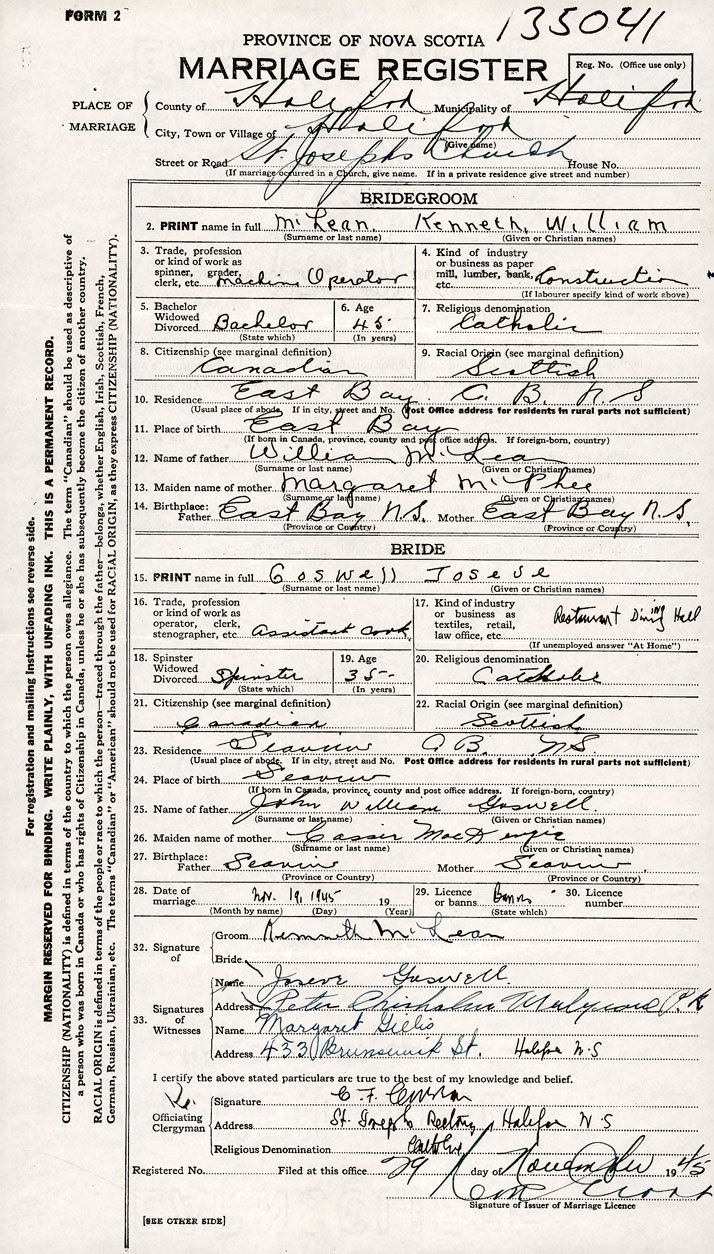 FORM 2
135041
PROVINCE OF NOVA SCOTIA
MARRIAGE REGISTER
Reg. No. (Office use only)
PLACE OF MARRIAGE
County of Halifax Municipality of Halifax
City, Town or Village of Halifax
(Give name)
Street or Road St Josephs Church House No.
(If marriage occurred in a Church, give name. If in a private residence give street and number)
BRIDEGROOM
2. PRINT name in full McLean Kenneth, William
(Surname or last name) (Given or Christian names)
3. Trade, profession or kind of work as spinner, grader, clerk, etc. Machine Operator
4. Kind of industry or business as paper mill, lumber, bank, etc. Construction
(If labourer specify kind of work above)
5. Bachelor Widowed Divorced Bachelor
(State which)
6. Age 45
(In years)
7. Religious denomination Catholic
8. Citizenship (see marginal definition) Canadian
9. Racial Origin (see marginal definition) Scottish
10. Residence East Bay C. B. N. S
(Usual place of abode. If in city, street and No. Post Office address for residents in rural parts not sufficient)
11. Place of birth East Bay
(If born in Canada, province, county and post office address. If foreign-born, country)
12. Name of father William McLean
(Surname or last name) (Given or Christian names)
13. Maiden name of mother Margaret McPhee
(Surname or last name) (Given or Christian names)
14. Birthplace: Father East Bay N.S. Mother East Bay N.S.
(Province or Country) (Province or Country)
BRIDE
15. PRINT name in full Goswell Joseve
(Surname or last name) (Given or Christian names)
16. Trade, profession or kind of work as operator, clerk, stenographer, etc. Assistant Cook
17. Kind of industry or business as textiles, retail, law office, etc. Restaurant Dining Hall
(If unemployed answer "At Home")
18. Spinster Widowed Divorced Spinster
(State which)
19. Age 35
(In years)
20. Religious denomination Catholic
21. Citizenship (see marginal definition) Canadian
22. Racial Origin (see marginal definition) Scottish
23. Residence C B. NS
(Usual place of abode. If in city, street and No. Post Office address for residents in rural parts not sufficient)
24. Place of birth
(If born in Canada, province, county and post office address. If foreign-born, country)
25. Name of father John William Goswell
(Surname or last name) (Given or Christian names)
26. Maiden name of mother Cassie MacKenzie
(Surname or last name) (Given or Christian names)
27. Birthplace: Father Mother
(Province or Country) (Province or Country)
28. Date of marriage Nov. 19, 1945 19
(Month by name) (Day) (Year)
29. Licence or banns Banns
(State which)
30. Licence number
32. Signature of
Groom Kenneth McLean
Bride
33. Signatures of Witnesses
Name Joseve Goswell
Address Peter Chisholm
Name Margaret Gillis
Address 433 Brunswick St. Halifax N.S
I certify the above stated particulars are true to the best of my knowledge and belief.
Officiating Clergyman
Signature C. F.
Address St. Josephs Rectory, Halifax N S
Religious Denomination Catholic
Registered No. Filed at this office 29 day of November 1945
Signature of Issuer of Marriage Licence
[SEE OTHER SIDE]
For registration and mailing instructions see reverse side.
MARGIN RESERVED FOR BINDING. WRITE PLAINLY, WITH UNFADING INK. THIS IS A PERMANENT RECORD.
CITIZENSHIP (NATIONALITY) is defined in terms of the country to which the person owes allegiance. The term "Canadian" should be used as descriptive of
a person who was born in Canada or who has rights of Citizenship in Canada, unless he or she has subsequently become the citizen of another country.
RACIAL ORIGIN is defined in terms of the people or race to which the person—traced through the father—belongs, whether English, Irish, Scottish, French,
German, Russian, Ukrainian, etc. The terms "Canadian" or "American" should not be used for RACIAL ORIGIN, as they express CITIZENSHIP (NATIONALITY).